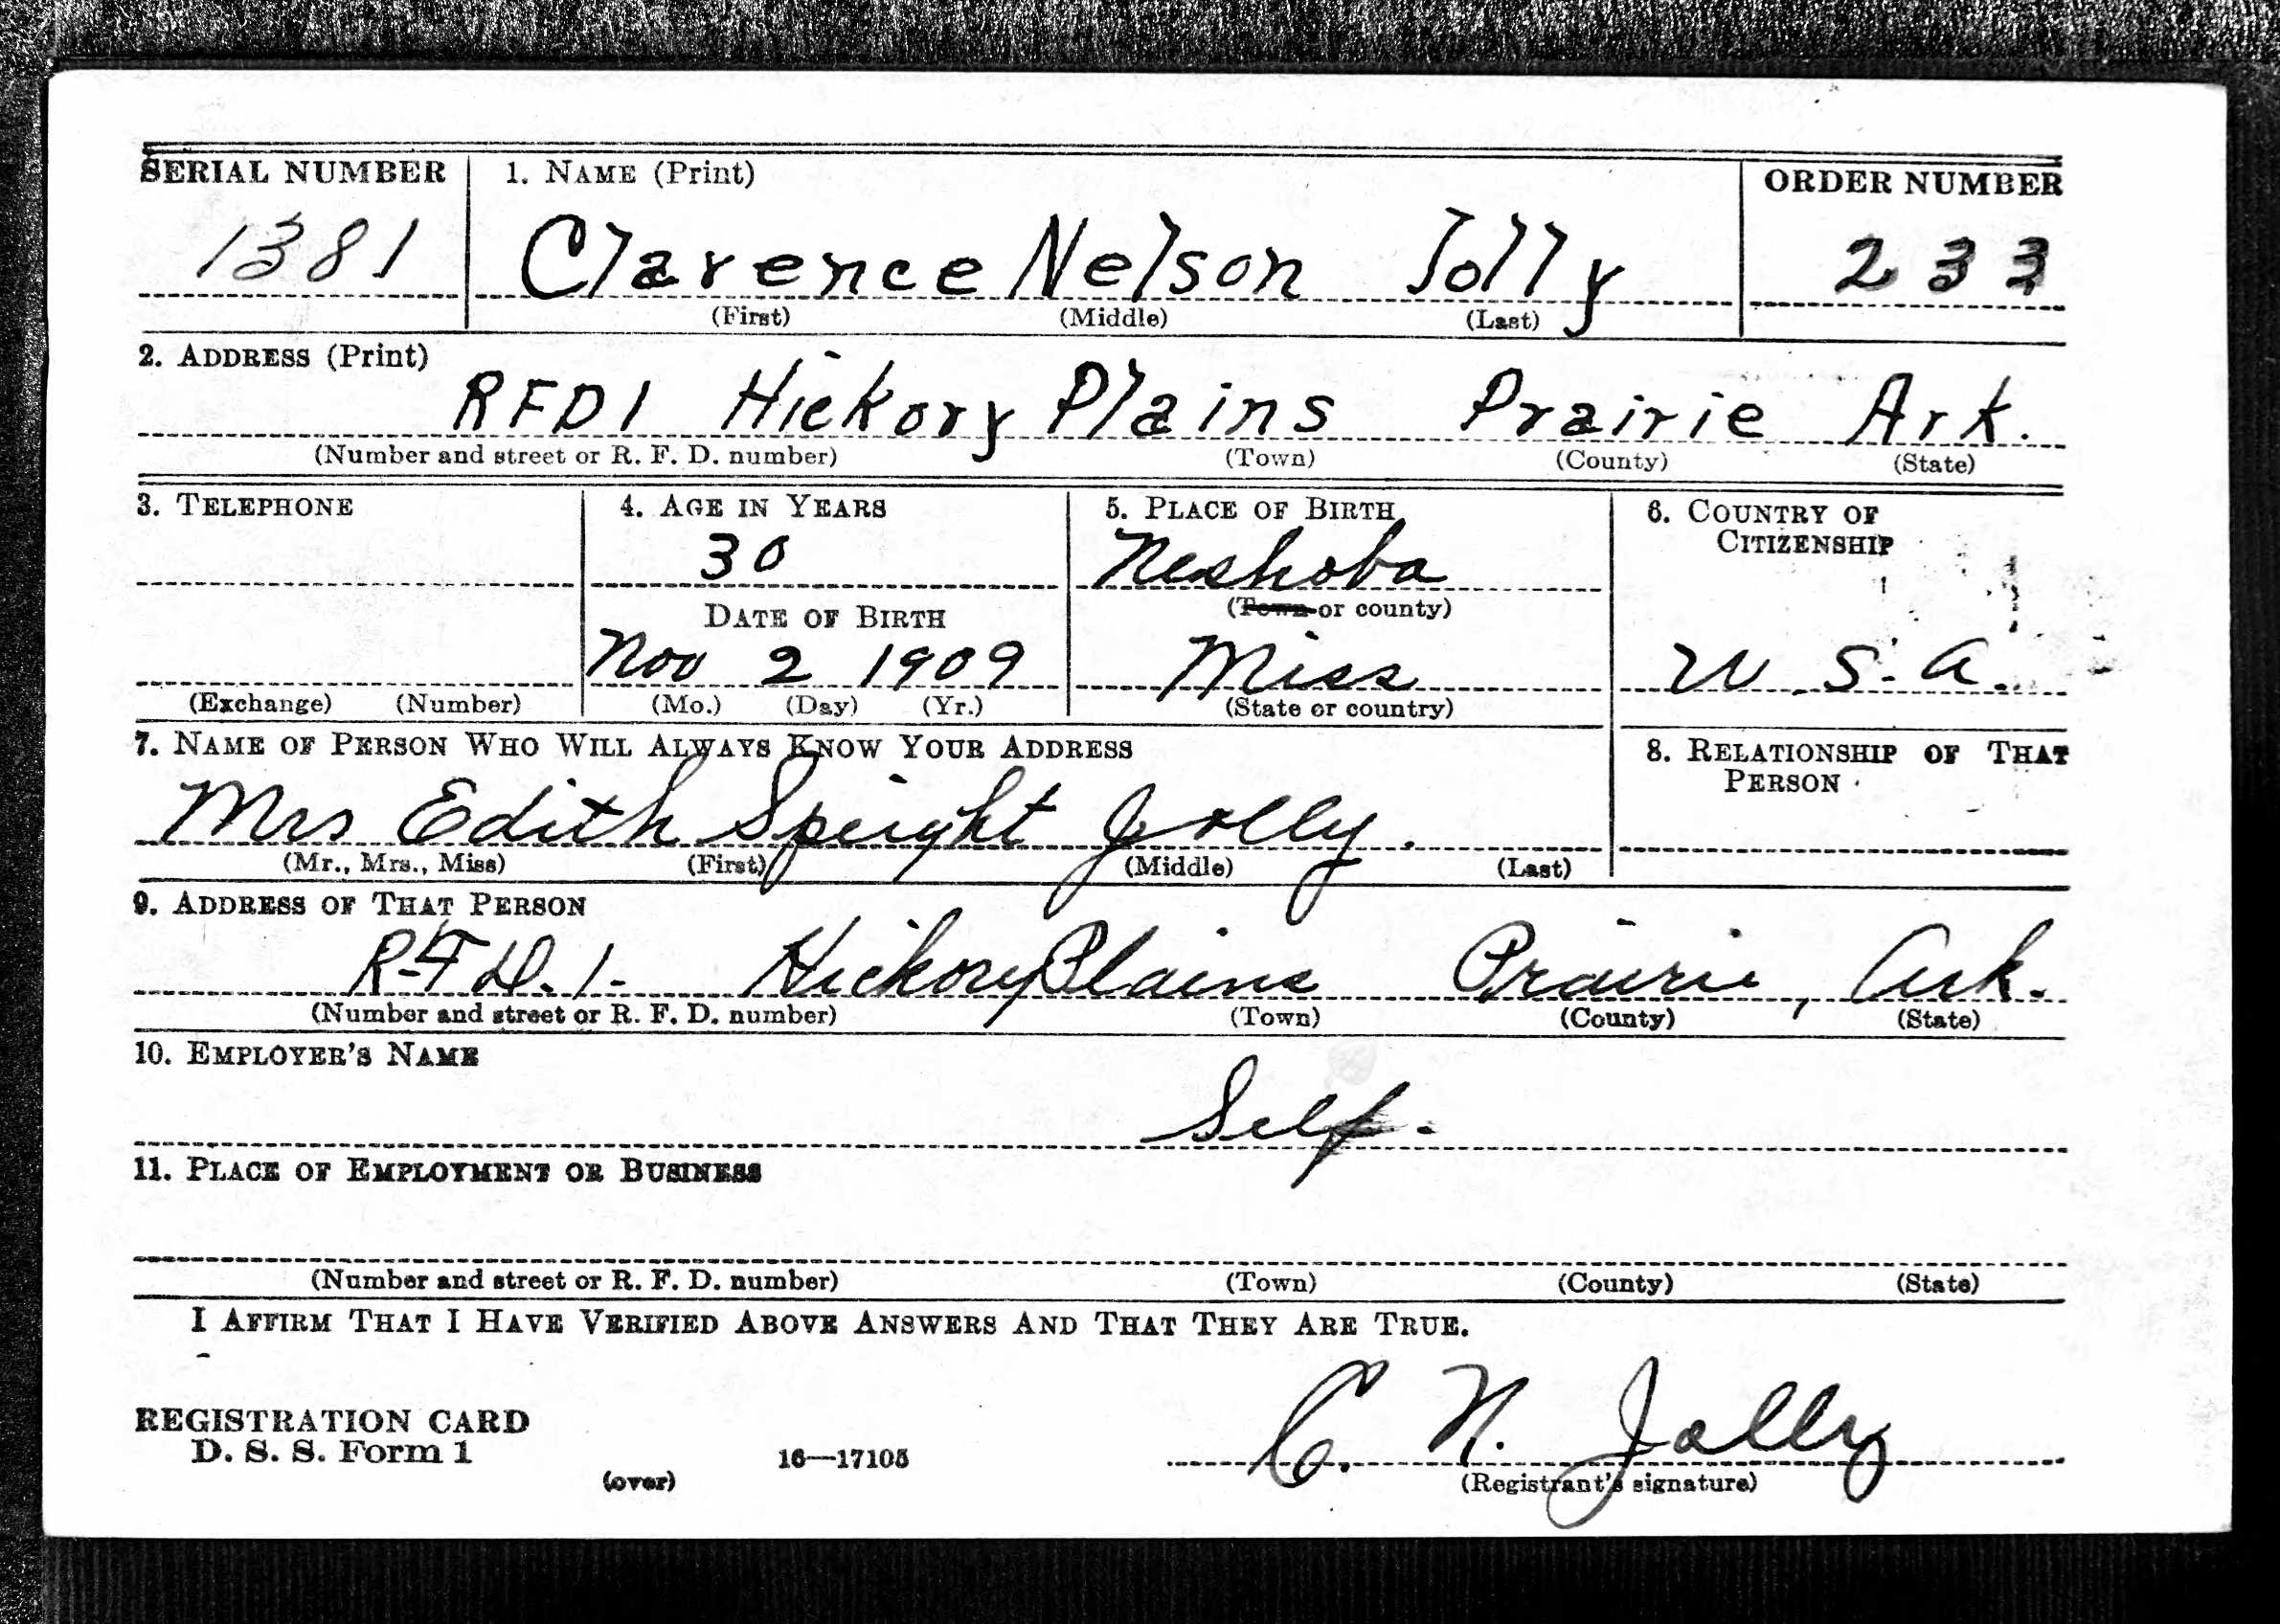 SERIAL NUMBER 1. NAME (Print) ORDER NUMBER
1381 Clarence Nelson Jolly 233
(First) (Middle) (Last)
2. ADDRESS (Print)
RFD1 Hickory Plains Prairie Ark.
(Number and street or R. F. D. number) (Town) (County) (State)
3. TELEPHONE 4. AGE IN YEARS 5. PLACE OF BIRTH 6. COUNTRY OF
CITIZENSHIP
30 Neshoba
DATE OF BIRTH (Town or county)
Nov 2 1909 Miss U. S. A.
(Exchange) (Number) (Mo.) (Day) (Yr.) (State or country)
7. NAME OF PERSON WHO WILL ALWAYS KNOW YOUR ADDRESS 8. RELATIONSHIP OF THAT
PERSON
Mrs Edith Speight Jolly.
(Mr., Mrs., Miss) (First) (Middle) (Last)
9. ADDRESS OF THAT PERSON
R.F.D.1. Hickory Plains Prairie, Ark.
(Number and street or R. F. D. number) (Town) (County) (State)
10. EMPLOYER'S NAME
Self.
11. PLACE OF EMPLOYMENT OR BUSINESS
(Number and street or R. F. D. number) (Town) (County) (State)
I AFFIRM THAT I HAVE VERIFIED ABOVE ANSWERS AND THAT THEY ARE TRUE.
REGISTRATION CARD
D. S. S. Form 1 16—17105 C. N. Jolly
(over) (Registrant's signature)